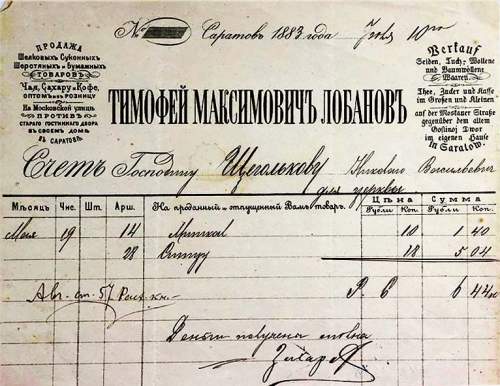 №
Саратовъ 1883 года Июля 10го
ПРОДАЖА
Шелковыхъ Суконныхъ
Шерстяныхъ и бумажныхъ
ТОВАРОВЪ
Чая, Сахару и Кофе,
ОПТОМЪ и въ РОЗНИЦУ
На Московской улицѣ
ПРОТИВЪ
СТАРАГО ГОСТИННАГО ДВОРА
ВЪ СВОЕМЪ ДОМѢ
ВЪ САРАТОВѢ.
ТИМОФЕЙ МАКСИМОВИЧЪ ЛОБАНОВЪ
Verkauf
Seiden, Tuch, Wollene
und Baumwollene
Waaren
Thee, Zucker und Kaffe
im Großen und Kleinen
auf der Moskauer Straße
gegenüber dem alten
Gostinoj Dwor
im eigenen Hause
in Saratow.
Счетъ Господину Щеголькову Николаю Васильевичу
для церкви
Мѣсяцъ Чис. Шт. Арш. На проданный и отпущенный Вамъ товаръ. Цѣна Сумма
Рубли Коп. Рубли Коп.
Мая 19 14 Миткаль 10 1 40
28 Ситцу 18 5 04
Р. 6 6 44
Деньги получены сполна